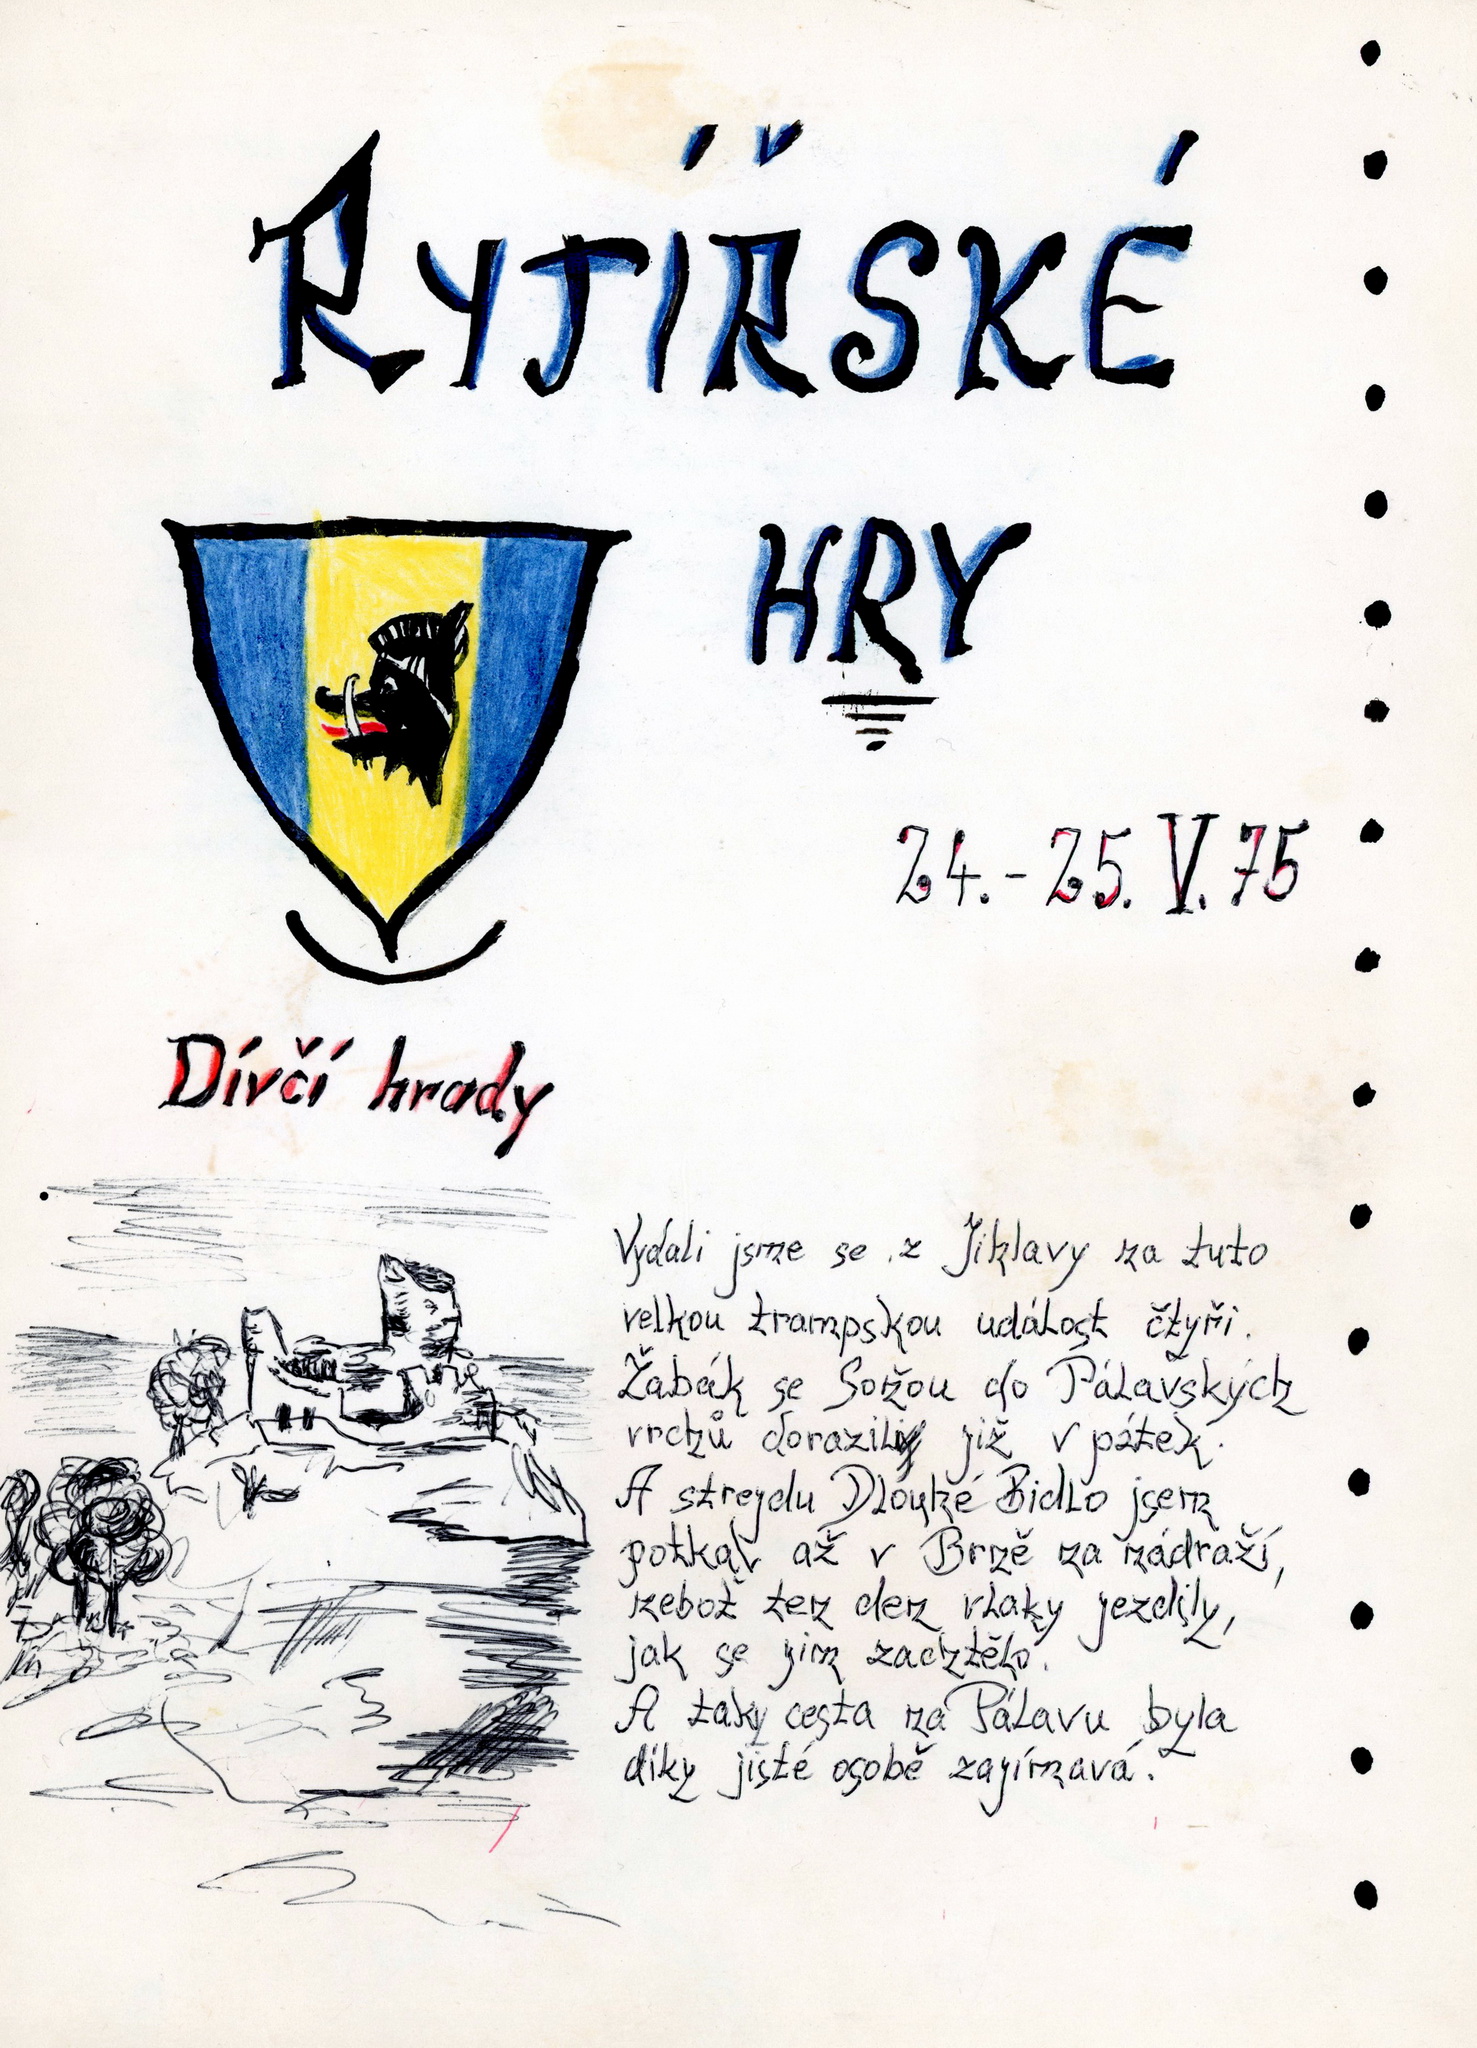 RYTÍŘSKÉ
HRY
24.-25. V. 75
Dívčí hrady
Vydali jsme se z Jihlavy na tuto
velkou trampskou událost čtyři.
Žabák se Soňou do Pálavských
vrchů dorazili již v pátek.
A strejdu Dlouhé Bidlo jsem
potkal až v Brně na nádraží,
neboť ten den vlaky jezdily,
jak se jim zachtělo.
A taky cesta na Pálavu byla
díky jisté osobě zajímavá.